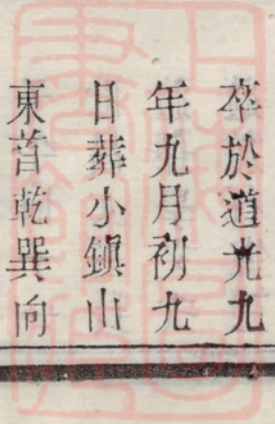 卒於道光九
年九月初九
日葬小鎮山
東首乾巽向